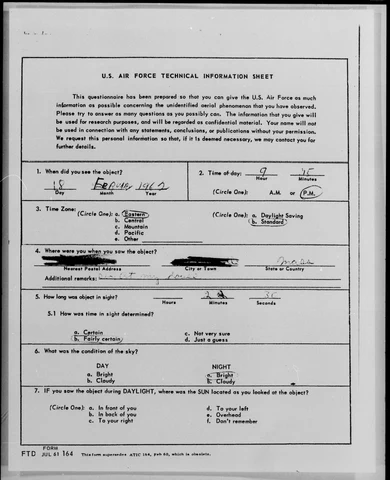 U.S. AIR FORCE TECHNICAL INFORMATION SHEET
This questionnaire has been prepared so that you can give the U.S. Air Force as much
information as possible concerning the unidentified aerial phenomenon that you have observed.
Please try to answer as many questions as you possibly can. The information that you give will
be used for research purposes, and will be regarded as confidential material. Your name will not
be used in connection with any statements, conclusions, or publications without your permission.
We request this personal information so that, if it is deemed necessary, we may contact you for
further details.
1. When did you see the object?
18 1962
Day Month Year
2. Time of day: 9
Hour Minutes
(Circle One): A.M. or P.M.
3. Time Zone:
(Circle One): a. Eastern
b. Central
c. Mountain
d. Pacific
e. Other
(Circle One): a. Daylight Saving
b. Standard
4. Where were you when you saw the object?
Mass
Nearest Postal Address City or Town State or Country
Additional remarks: my house
5. How long was object in sight? 2 30
Hours Minutes Seconds
5.1 How was time in sight determined?
a. Certain c. Not very sure
b. Fairly certain d. Just a guess
6. What was the condition of the sky?
DAY NIGHT
a. Bright a. Bright
b. Cloudy b. Cloudy
7. IF you saw the object during DAYLIGHT, where was the SUN located as you looked at the object?
(Circle One): a. In front of you d. To your left
b. In back of you e. Overhead
c. To your right f. Don't remember
FORM
FTD JUL 61 164 This form supersedes ATIC 164, which is obsolete.